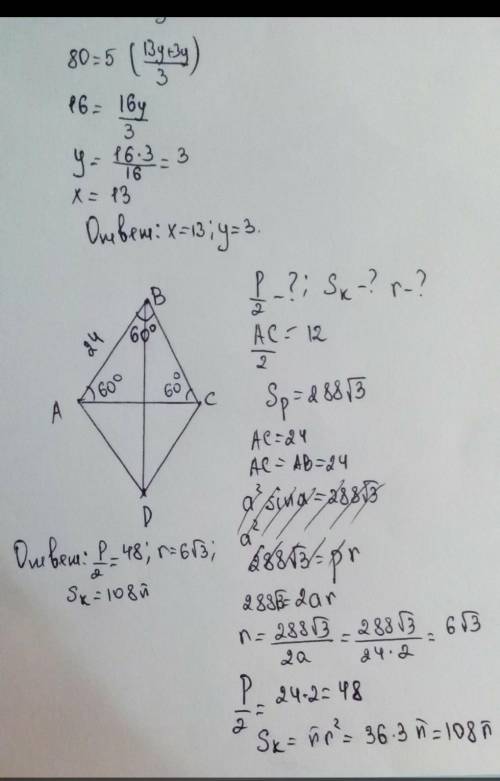 80=5 (13y+3y/3)
16= 16y/3
y= 16·3/16 = 3
x= 13
Ответ: x=13; y=3.
B
24
60°
A
60°
60°
C
D
P/2 -?; Sк -? r -?
AC/2 = 12
Sр = 288√3
AC=24
AC= AB=24
a² sin a = 288√3
a²
288√3 = pr
288√3 = 2ar
r = 288√3/2a = 288√3/24·2 = 6√3
P/2 = 24·2 = 48
Sк = πr² = 36·3π = 108π
Ответ: P/2 = 48; r=6√3;
Sк = 108π